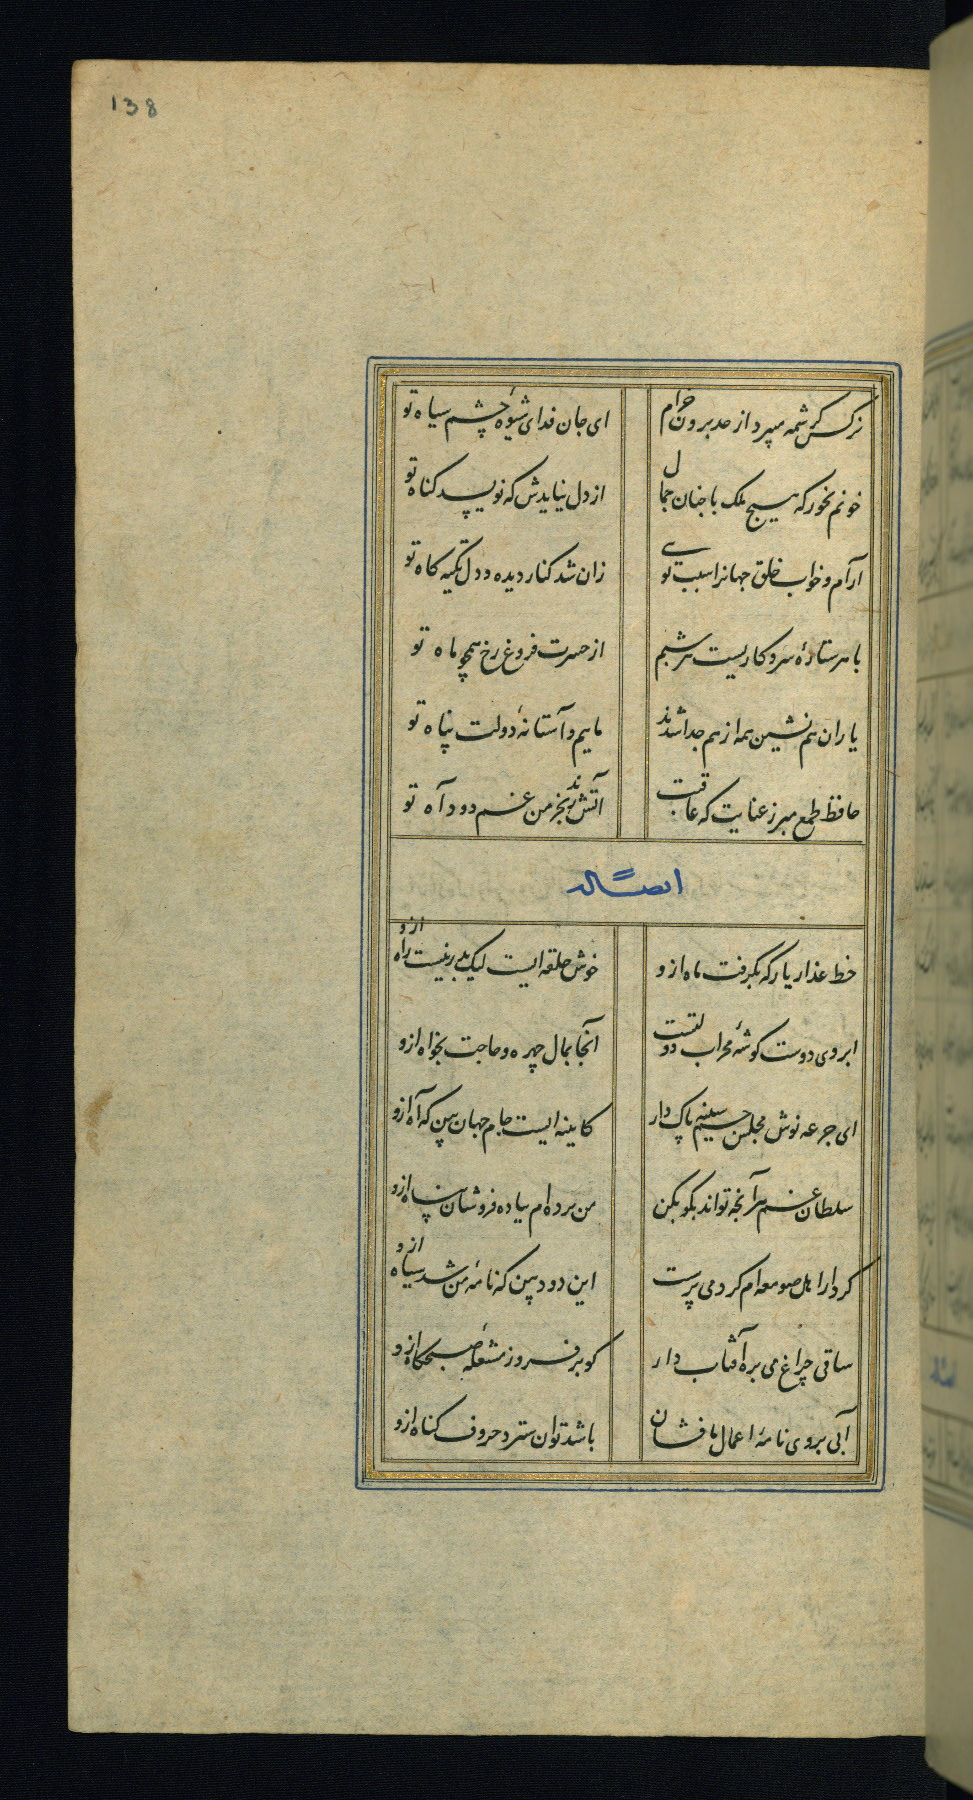 138
نرکس کرشمه میبرد از حد برون خرام
ای جان فدای شیوهٔ چشم سیاه تو
خونم بخور که هیچ ملک با چنان جمال
از دل نیایدش که نویسد کناه تو
آرام و خواب خلق جهانرا سبب تویی
زان شد کنار دیده و دل تکیه کاه تو
با هر ستارهٔ سر و کاریست هر شبم
از حسرت فروغ رخ همچو ماه تو
یاران هم نشین همه از هم جدا شدند
ماییم و آستانهٔ دولت پناه تو
حافظ طمع مبر ز عنایت که عاقبت
آتش زند بخرمن غم دود آه تو
ایضاً له
خط عذار یار که بگرفت ماه ازو
خوش حلقه ایست لیک بدر نیست راه ازو
ابروی دوست کوشهٔ محراب دولتست
آنجا بمال چهره و حاجت بخواه ازو
ای جرعه نوش مجلس جم سینه پاک دار
کایینه ایست جام جهان بین که آه ازو
سلطان غم هر آنچه تواند بکو بکن
من برده ام بباده فروشان پناه ازو
کردار اهل صومعه ام کرد می پرست
این دود بین که نامهٔ من شد سیاه ازو
ساقی چراغ می بره آفتاب دار
کو برفروز مشعلهٔ صبحکاه ازو
آبی بروی نامهٔ اعمال ما فشان
باشد توان سترد حروف کناه ازو